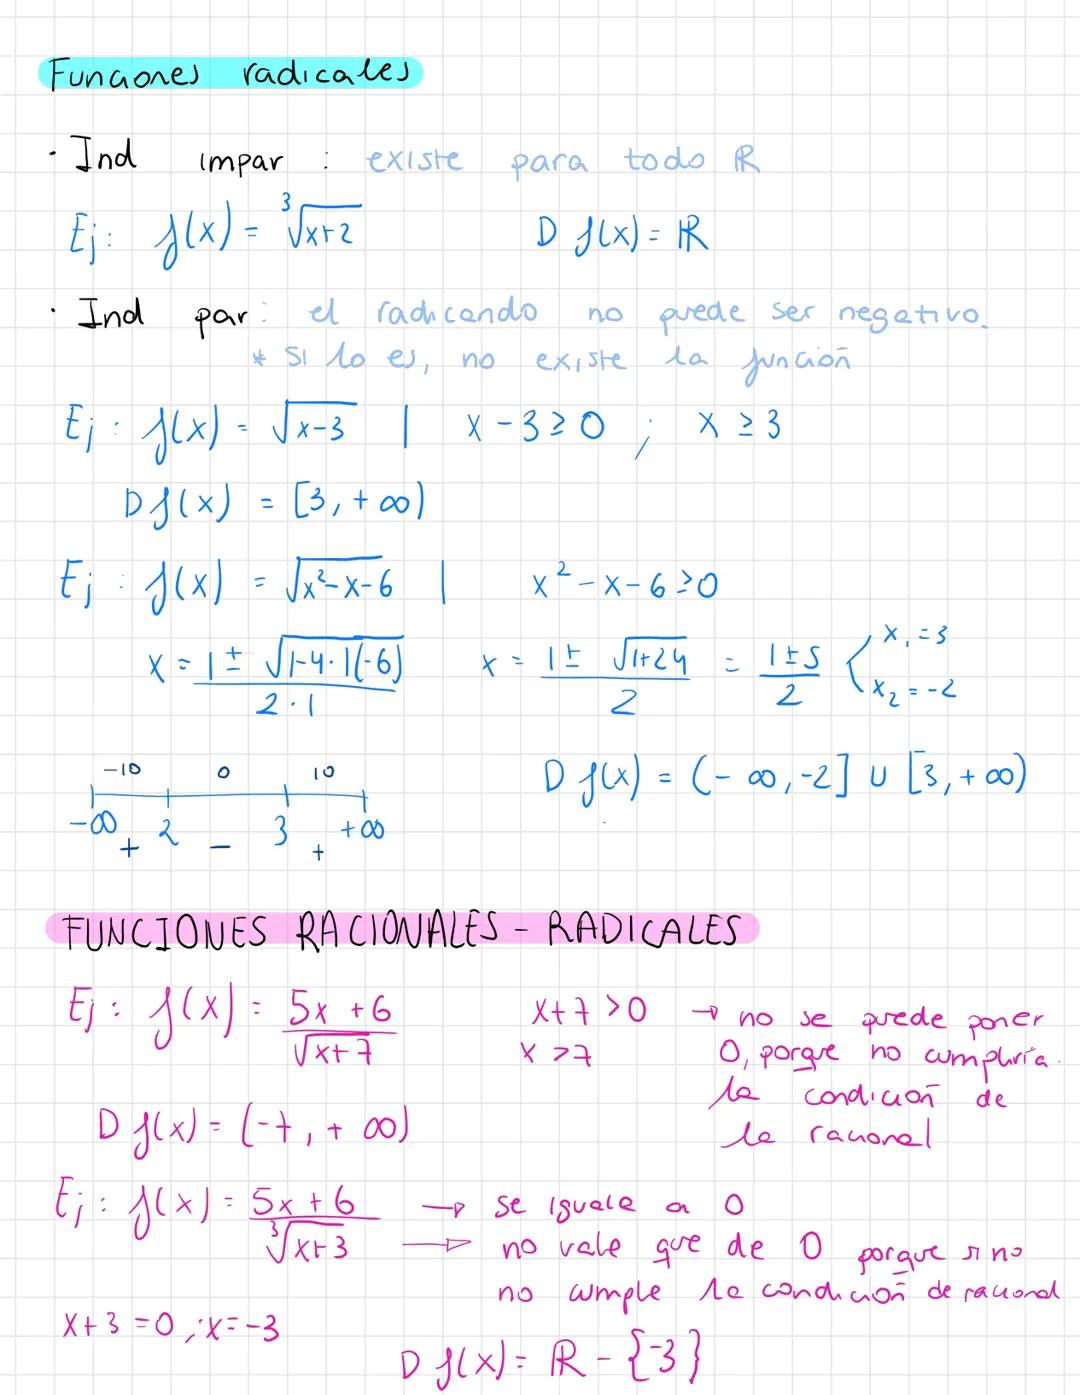 Funciones radicales
· Ind impar : existe para todo ℝ
Ej: f(x) = ∛(x+2) D f(x) = ℝ
· Ind par: el radicando no puede ser negativo.
* Si lo es, no existe la función
Ej: f(x) = √(x-3) | x - 3 ≥ 0 ; x ≥ 3
D f(x) = [3, +∞)
Ej: f(x) = √(x²-x-6) | x² - x - 6 ≥ 0
x = (1 ± √(1-4·1(-6)))/(2·1) x = (1 ± √(1+24))/2 = (1±5)/2 < x₁ = 3 x₂ = -2
-10 0 10
-∞ 2 3 +∞
+ - +
D f(x) = (-∞, -2] ∪ [3, +∞)
FUNCIONES RACIONALES - RADICALES
Ej: f(x) = (5x + 6)/√(x+7) x+7 > 0 → no se puede poner
x > 7 0, porque no cumpliría
la condición de
la racional
D f(x) = (-7, +∞)
Ej: f(x) = (5x + 6)/∛(x+3) → se iguala a 0
→ no vale que de 0 porque si no
no cumple la condición de racional
x + 3 = 0 ; x = -3
D f(x) = ℝ - {-3}